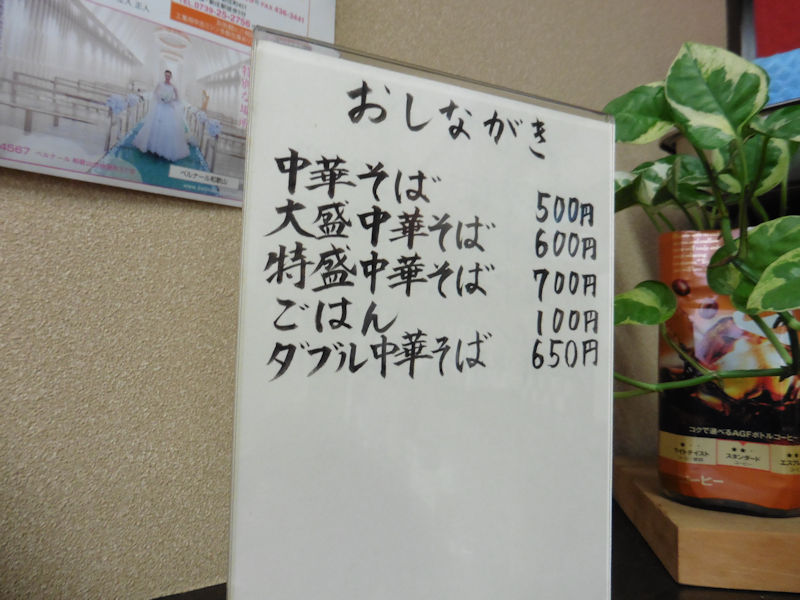 TEL 0739-25-2756
FAX 436-3441
4567
ベルナール和歌山
おしながき
中華そば 500円
大盛中華そば 600円
特盛中華そば 700円
ごはん 100円
ダブル中華そば 650円
コクで選べるAGFボトルコーヒー
スタンダード
コーヒー